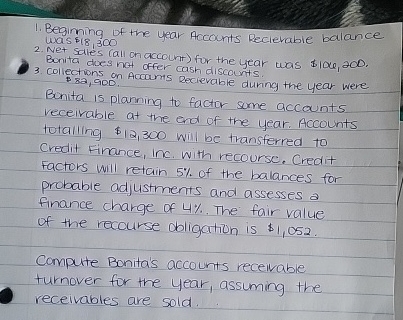 1. Beginning of the year Accounts Recievable balance
was $18,300
2. Net sales (all on account) for the year was $100,200.
Bonita does not offer cash discounts.
3. Collections on Accounts Recievable during the year were
$82,900.
Bonita is planning to factor some accounts
receivable at the end of the year. Accounts
totalling $12,300 will be transferred to
Credit Finance, Inc. with recourse. Credit
Factors will retain 5% of the balances for
probable adjustments and assesses a
finance charge of 4%. The fair value
of the recourse obligation is $1,052.
Compute Bonita's accounts receivable
turnover for the year, assuming the
receivables are sold.